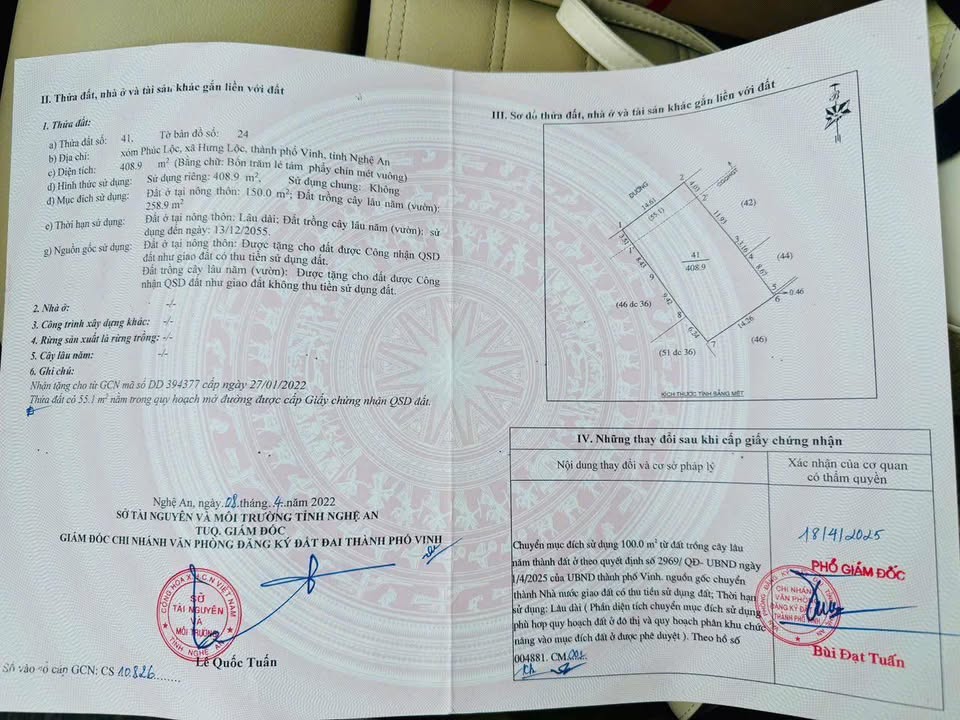 II. Thửa đất, nhà ở và tài sản khác gắn liền với đất
1. Thửa đất:
a) Thửa đất số: 41, Tờ bản đồ số: 24
b) Địa chỉ: xóm Phúc Lộc, xã Hưng Lộc, thành phố Vinh, tỉnh Nghệ An
c) Diện tích: 408.9 m² (Bằng chữ: Bốn trăm lẻ tám phẩy chín mét vuông)
d) Hình thức sử dụng: Sử dụng riêng: 408.9 m², Sử dụng chung: Không
đ) Mục đích sử dụng: Đất ở tại nông thôn: 150.0 m²; Đất trồng cây lâu năm (vườn):
258.9 m²
e) Thời hạn sử dụng: Đất ở tại nông thôn: Lâu dài; Đất trồng cây lâu năm (vườn): sử
dụng đến ngày: 13/12/2055.
g) Nguồn gốc sử dụng: Đất ở tại nông thôn: Được tặng cho đất được Công nhận QSD
đất như giao đất có thu tiền sử dụng đất.
Đất trồng cây lâu năm (vườn): Được tặng cho đất được Công
nhận QSD đất như giao đất không thu tiền sử dụng đất.
2. Nhà ở: -/-
3. Công trình xây dựng khác: -/-
4. Rừng sản xuất là rừng trồng: -/-
5. Cây lâu năm: -/-
6. Ghi chú:
Nhận tặng cho từ GCN mã số DD 394377 cấp ngày 27/01/2022
Thửa đất có 55.1 m² nằm trong quy hoạch mở đường được cấp Giấy chứng nhận QSD đất.
Nghệ An, ngày 08 tháng 4 năm 2022
SỞ TÀI NGUYÊN VÀ MÔI TRƯỜNG TỈNH NGHỆ AN
TUQ. GIÁM ĐỐC
GIÁM ĐỐC CHI NHÁNH VĂN PHÒNG ĐĂNG KÝ ĐẤT ĐAI THÀNH PHỐ VINH
CỘNG HÒA X.H.C.N VIỆT NAM
SỞ
TÀI NGUYÊN
VÀ
MÔI TRƯỜNG
TỈNH NGHỆ AN
Lê Quốc Tuấn
Số vào sổ cấp GCN: CS 10826
III. Sơ đồ thửa đất, nhà ở và tài sản khác gắn liền với đất
B
ĐƯỜNG
14.61
(55.1)
1
2
4.03
11.93
(42)
3.16
8.67
(44)
5
0.46
6
14.26
(46)
7
6.34
8
9.42
9
8.43
3.82
41
408.9
(46 dc 36)
(51 dc 36)
KÍCH THƯỚC TÍNH BẰNG MÉT
IV. Những thay đổi sau khi cấp giấy chứng nhận
Nội dung thay đổi và cơ sở pháp lý
Xác nhận của cơ quan
có thẩm quyền
Chuyển mục đích sử dụng 100.0 m² từ đất trồng cây lâu
năm thành đất ở theo quyết định số 2969/ QĐ- UBND ngày
1/4/2025 của UBND thành phố Vinh. nguồn gốc chuyển
thành Nhà nước giao đất có thu tiền sử dụng đất; Thời hạn
sử dụng: Lâu dài ( Phần diện tích chuyển mục đích sử dụng
phù hợp quy hoạch đất ở đô thị và quy hoạch phân khu chức
năng vào mục đích đất ở được phê duyệt ). Theo hồ sơ
004881. CM.002.
18/4/2025
PHÓ GIÁM ĐỐC
CHI NHÁNH
VĂN PHÒNG
ĐĂNG KÝ ĐẤT ĐAI
THÀNH PHỐ VINH
Bùi Đạt Tuấn